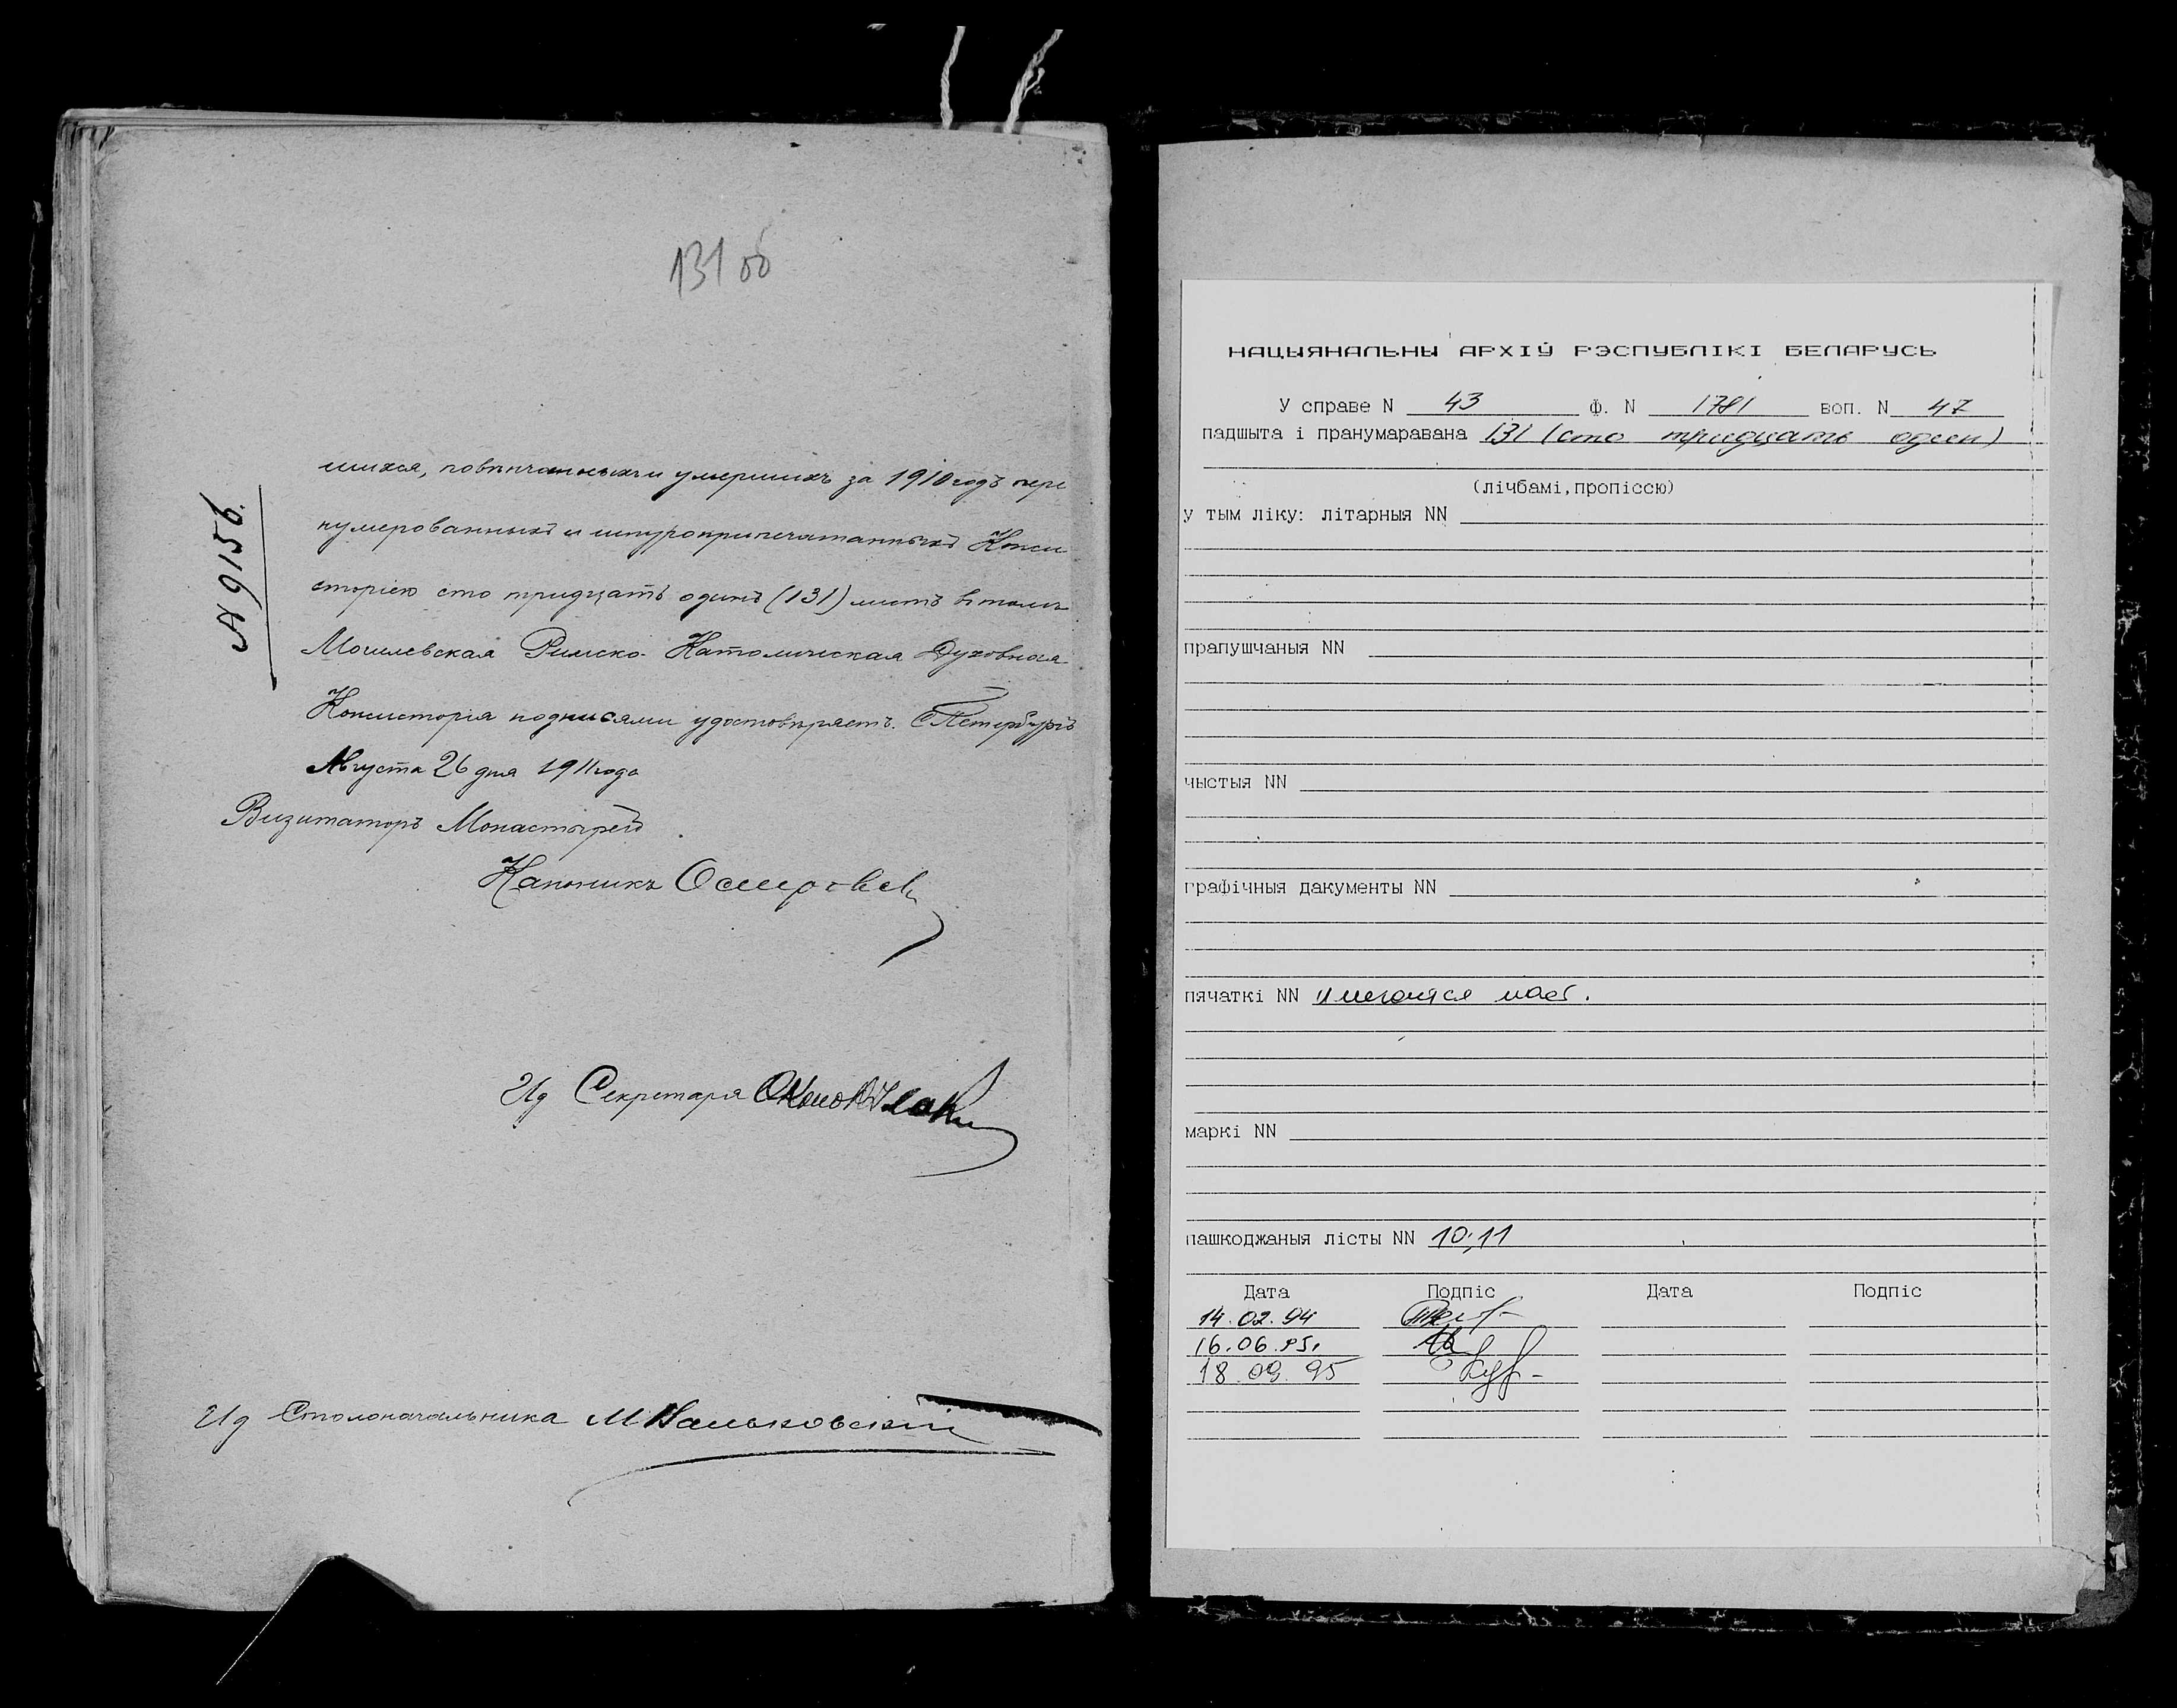 131 об
№ 9156.
шихся, повѣнчанныхъ и умершихъ за 1910 годъ пере
нумерованныхъ и шнуроприпечатанныхъ Конси
сторіею сто тридцать одинъ (131) листъ въ томъ
Могилевская Римско-Католическая Духовная
Консисторія подписями удостовѣряетъ. С Петербургъ
Августа 26 дня 1911 года
Визитаторъ Монастырей
Каноникъ
Ид Секретаря
Ид Столоначальника М
НАЦЫЯНАЛЬНЫ АРХІЎ РЭСПУБЛІКІ БЕЛАРУСЬ
У справе N 43 Ф. N 1781 воп. N 47
падшыта і пранумаравана 131 (сто тридцать один)
(лічбамі,пропіссю)
у тым ліку: літарныя NN
прапушчаныя NN
чыстыя NN
графічныя дакументы NN
пячаткі NN имеются
маркі NN
пашкоджаныя лісты NN 10; 11
Дата Подпіс Дата Подпіс
14.02.94
16.06.95.
18.09.95